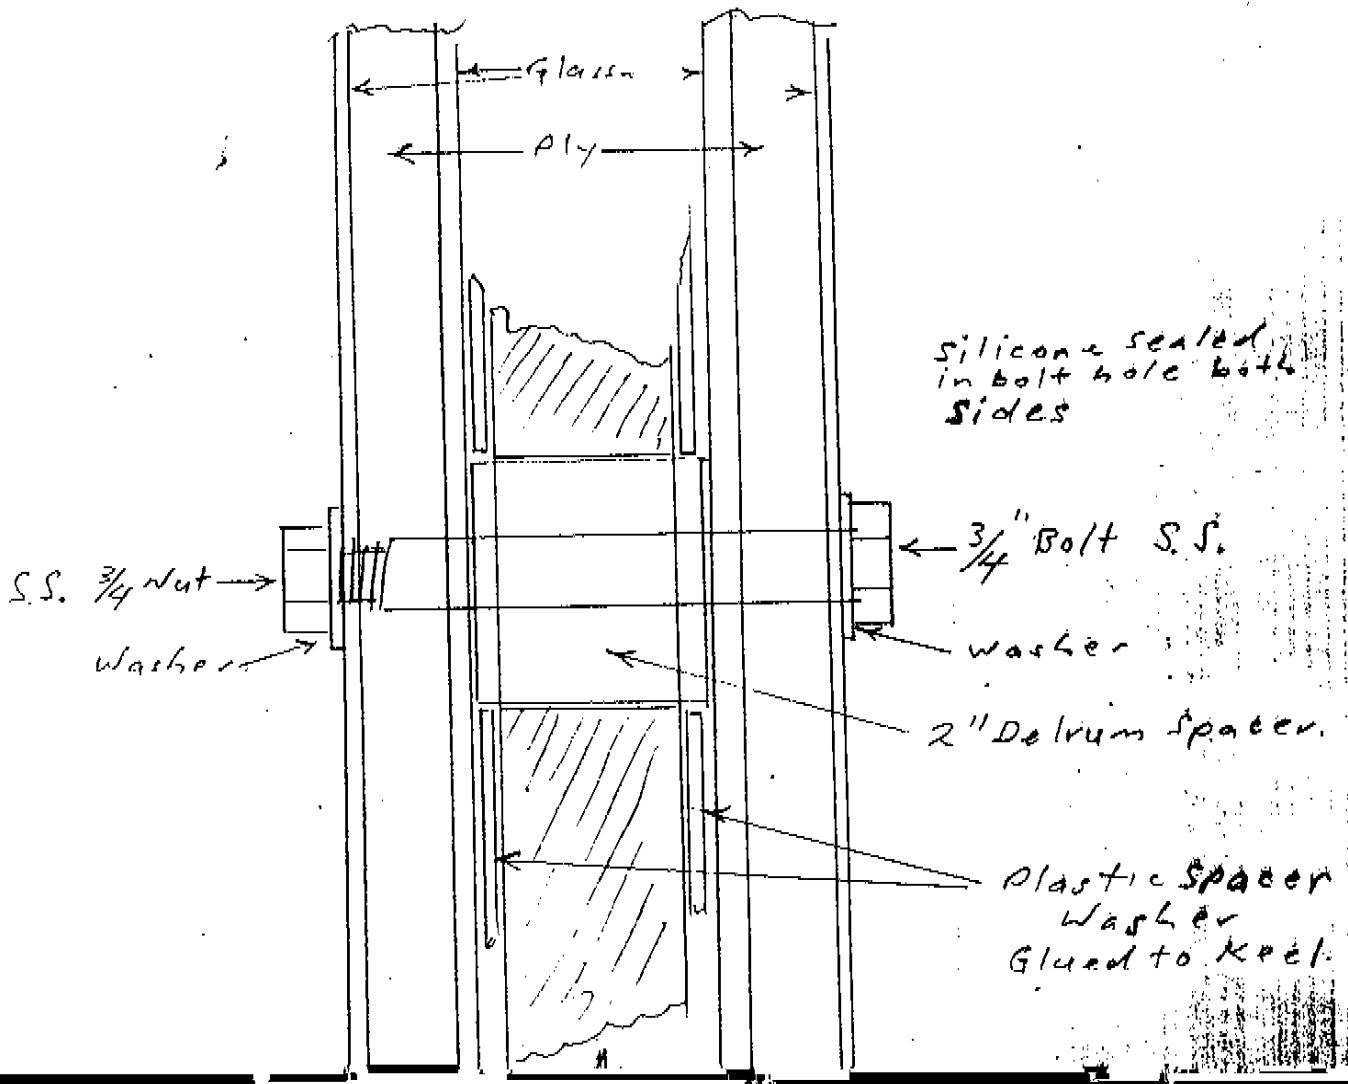 Glass
Ply
silicone sealed
in bolt hole both
sides
3/4" Bolt S.S.
S.S. 3/4 Nut
washer
washer
2" Delrum Spacer.
Plastic Spacer
Washer
Glued to Keel.